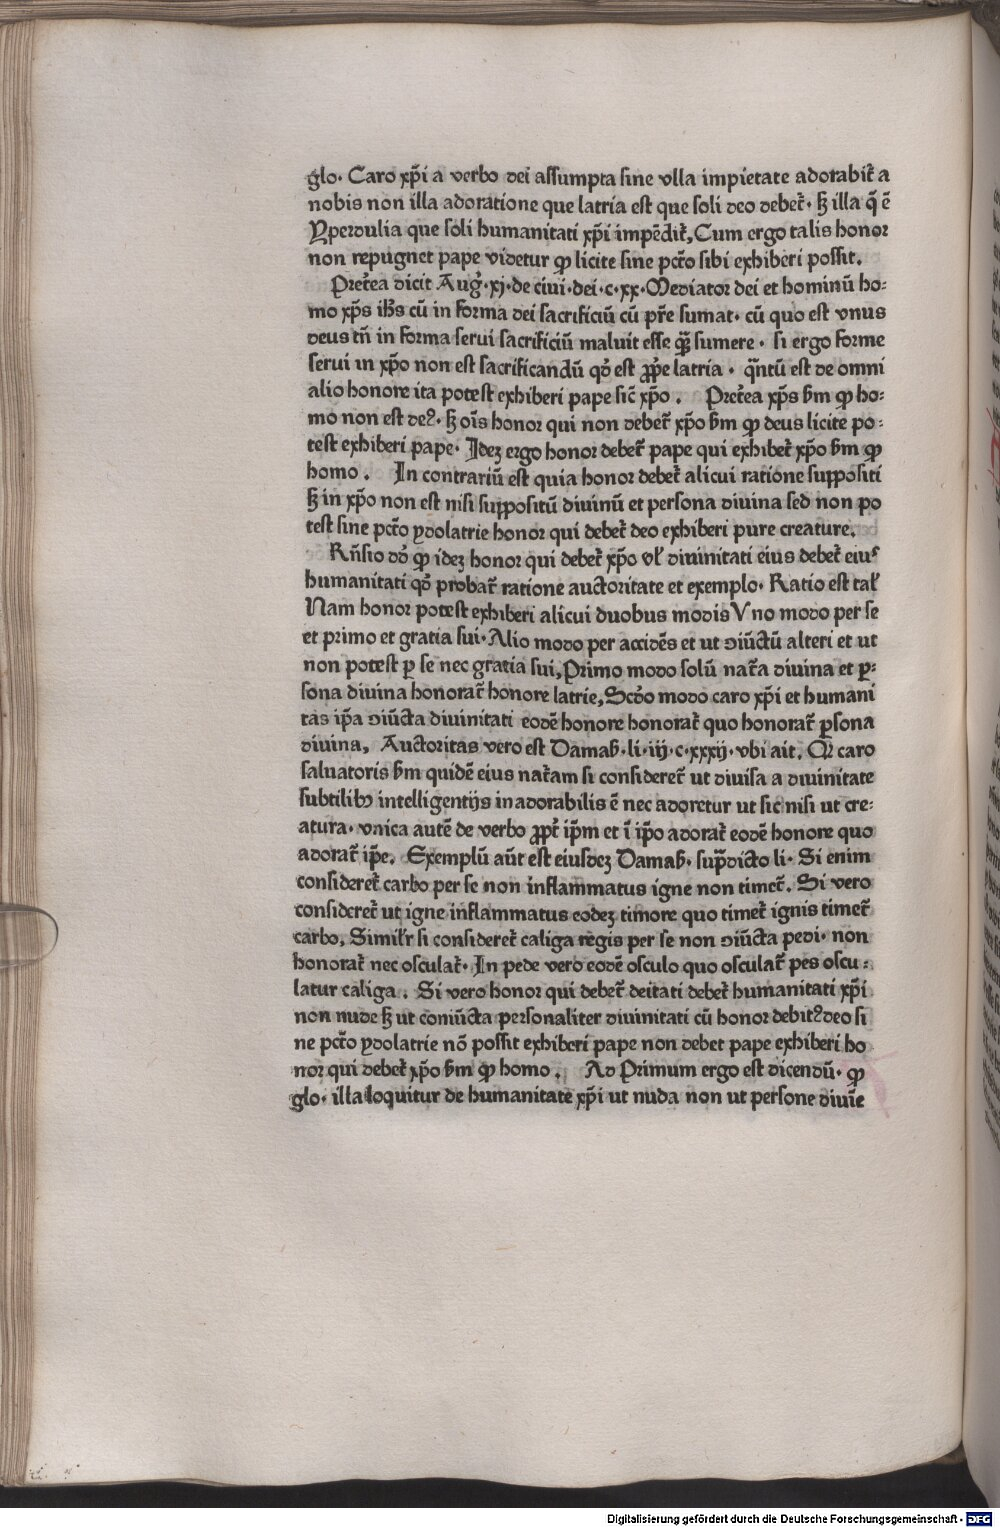 glo· Caro xp̄i a verbo dei assumpta sine vlla impietate adorabit᷑ a
nobis non illa adoratione que latria est que soli deo debet᷑· sꝫ illa q̄ ē
Yperdulia que soli humanitati xp̄i impēdit᷑, Cum ergo talis honor
non repugnet pape videtur ꝙ licite sine pctō sibi exhiberi possit.
Pret᷑ea dicit Aug᷑·xj·de ciui·dei·c·xx·Mediator dei et hominū ho⸗
mo xp̄s ih̄s cū in forma dei sacrificiū cū pr̄e sumat· cū quo est vnus
deus tn̄ in forma serui sacrificiū maluit esse qꝫ̄ sumere· si ergo forme
serui in xp̄o non est sacrificandū qđ est ꝓp̄e latria· qn̄tū est de omni
alio honore ita potest exhiberi pape sic̄ xp̄o. Pret᷑ea xp̄s ẜm ꝙ ho⸗
mo non est deꝰ· sꝫ oīs honor qui non debet᷑ xp̄o ẜm ꝙ deus licite po⸗
test exhiberi pape· Ideꝫ ergo honor debet᷑ pape qui exhibet᷑ xp̄o ẜm ꝙ
homo. In contrariū est quia honor debet᷑ alicui ratione suppositi
sꝫ in xp̄o non est nisi suppositū diuinū et persona diuina sed non po
test sine pctō ydolatrie honor qui debet᷑ deo exhiberi pure creature.
Rn̄sio dđ ꝙ ideꝫ honor qui debet᷑ xp̄o vł diuinitati eius debet᷑ eiuˢ
humanitati qđ probat᷑ ratione auctoritate et exemplo· Ratio est tał
Nam honor potest exhiberi alicui duobus modis Vno modo per se
et primo et gratia sui·Alio modo per accidēs et ut ↄiūctū alteri et ut
non potest ꝑ se nec gratia sui, Primo modo solū nat᷑a diuina et ꝑ⸗
sona diuina honorat᷑ honore latrie, Scđo modo caro xp̄i et humani
tas ip̄a ↄiūcta diuinitati eodē honore honorat᷑ quo honorat᷑ ꝑsona
diuina, Auctoritas vero est Damaẜ·li·iij·c·xxxij·vbi ait. Qꝛ caro
saluatoris ẜm quidē eius nat᷑am si consideret᷑ ut diuisa a diuinitate
subtilibꝫ intelligentijs inadorabilis ē nec adoretur ut sic nisi ut cre⸗
atura· vnica autē de verbo ꝓpt᷑ ip̄m et ī ip̄o adorat᷑ eodē honore quo
adorat᷑ ip̄e. Exemplū aūt est eiusdeꝫ Damaẜ· sup̄dicto li· Si enim
consideret᷑ carbo per se non inflammatus igne non timet᷑. Si vero
consideret᷑ ut igne inflammatus eodeꝫ timore quo timet᷑ ignis timet᷑
carbo, Simił'r si consideret᷑ caliga regis per se non ↄiūcta pedi· non
honorat᷑ nec osculat᷑· In pede vero eodē osculo quo osculat᷑ pes oscu⸗
latur caliga. Si vero honor qui debet᷑ deitati debet᷑ humanitati xp̄i
non nude sꝫ ut coniūcta personaliter diuinitati cū honor debitꝰ deo si
ne pctō ydolatrie nō possit exhiberi pape non debet pape exhiberi ho
nor qui debet᷑ xp̄o ẜm ꝙ homo. Ad Primum ergo est dicendū· ꝙ
glo· illa loquitur de humanitate xp̄i ut nuda non ut persone diuīe
Digitalisierung gefördert durch die Deutsche Forschungsgemeinschaft - DFG